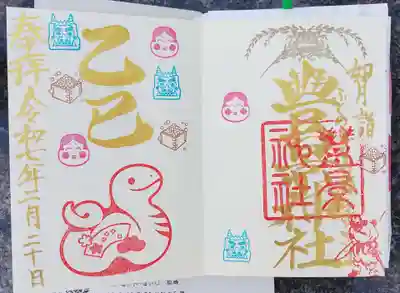 豊景神社
豊景
神社
乙巳
奉拝 令和七年二月二十日